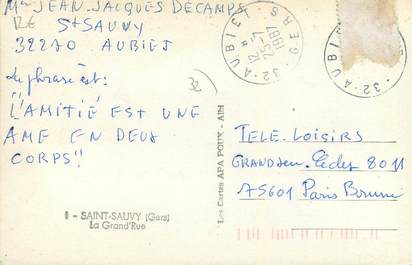 JEAN-JACQUES DECAMPS
St SAUVY
32270 AUBIET
La phrase est:
"L'AMITIÉ EST UNE
AME EN DEUX
CORPS"
SAINT-SAUVY (Gers)
La Grand'Rue
Les Cartes APA POUX - Albi
32 - AUBIET
GERS
25-7
1981
32 - AUBIET
TELE-LOISIRS
Cedex 8011
75601 Paris